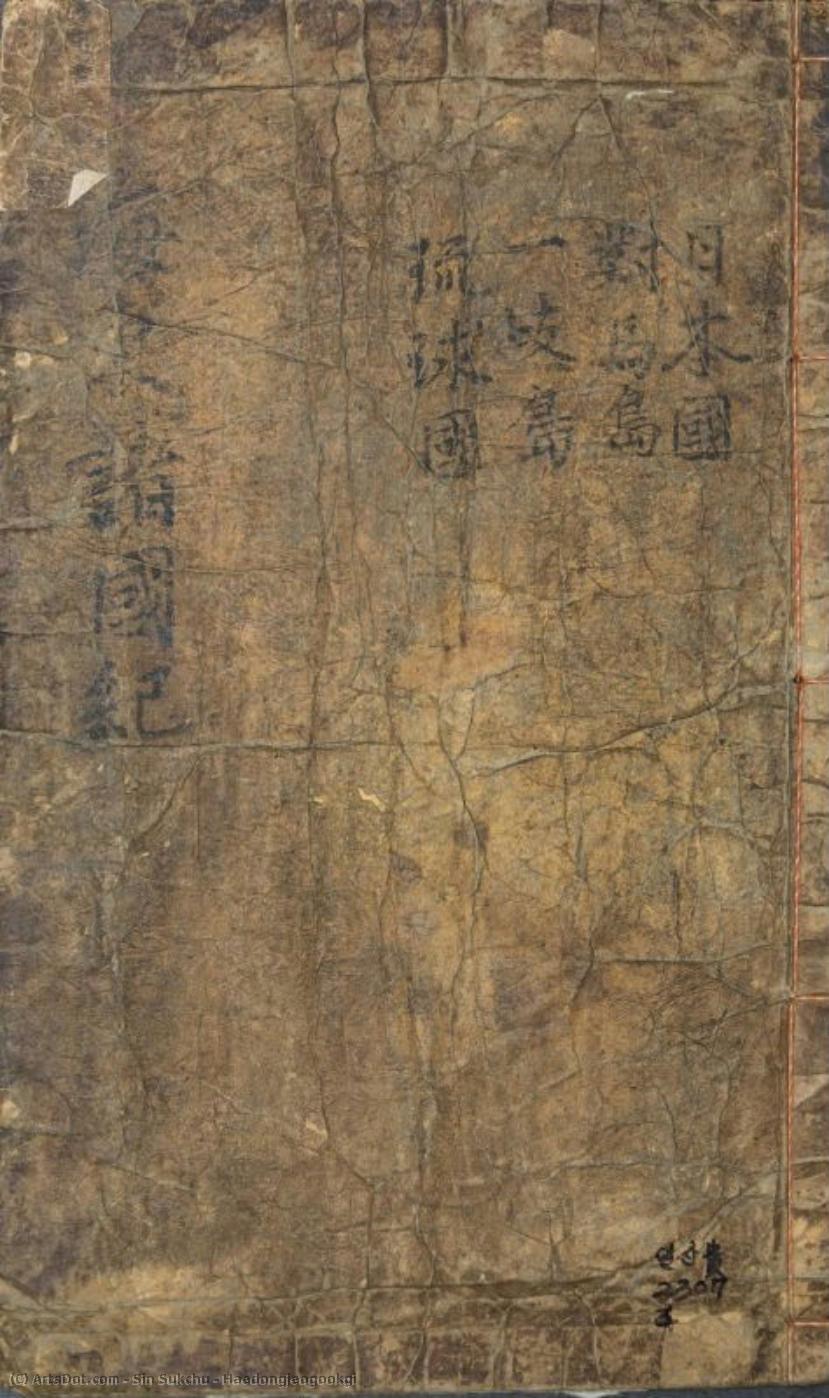 日本國
對馬島
一岐島
琉球國
海東諸國紀
貴
2307
(C) ArtsDot.com - Sin Sukchu - Haedongjeogookgi